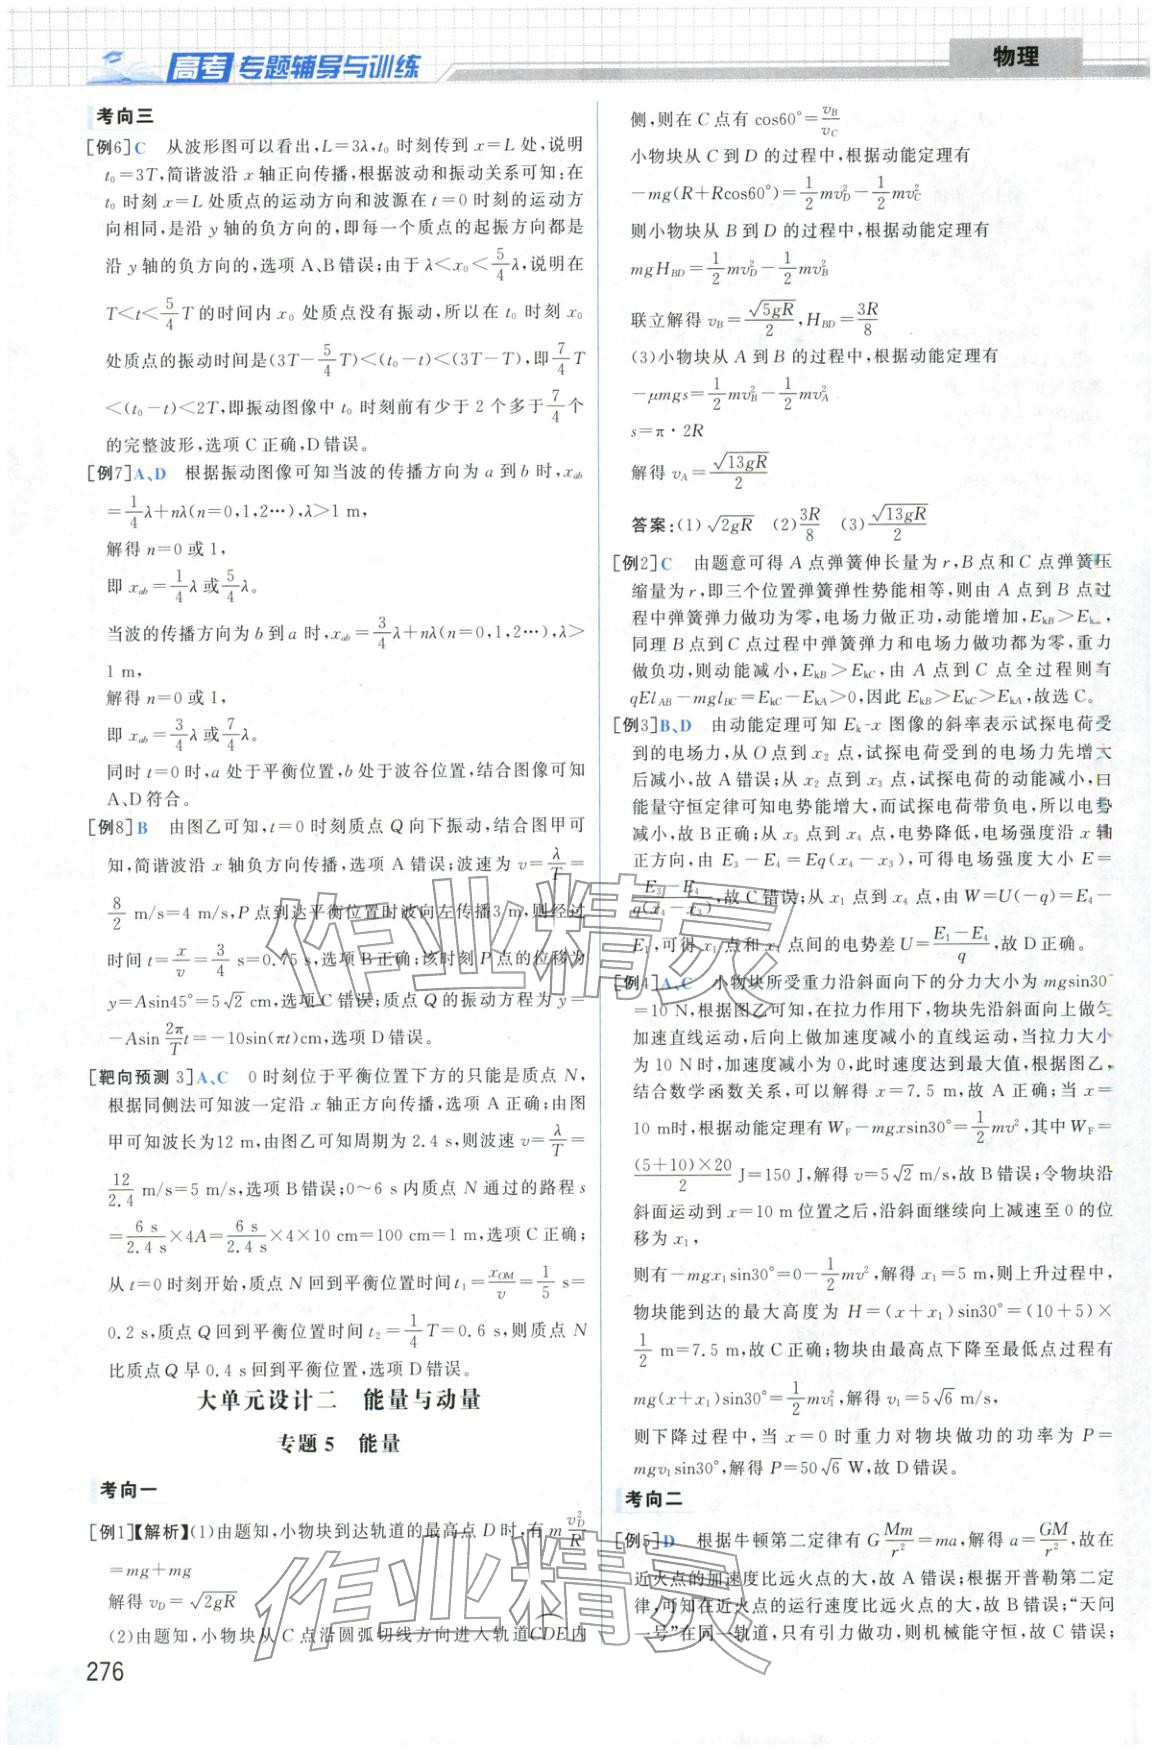 高考专题辅导与训练
物理
考向三
[例6]C 从波形图可以看出,L=3λ,t₀时刻传到x=L处,说明
t₀=3T,简谐波沿x轴正向传播,根据波动和振动关系可知:在
t₀时刻x=L处质点的运动方向和波源在t=0时刻的运动方
向相同,是沿y轴的负方向的,即每一个质点的起振方向都是
沿y轴的负方向的,选项A、B错误;由于λ<x₀<5/4λ,说明在
T<t<5/4T的时间内x₀处质点没有振动,所以在t₀时刻x₀
处质点的振动时间是(3T-5/4T)<(t₀-t)<(3T-T),即7/4T
<(t₀-t)<2T,即振动图像中t₀时刻前有少于2个多于7/4个
的完整波形,选项C正确,D错误。
[例7]A、D 根据振动图像可知当波的传播方向为a到b时,x_ab
=1/4λ+nλ(n=0,1,2…),λ>1 m,
解得n=0或1,
即x_ab=1/4λ或5/4λ。
当波的传播方向为b到a时,x_ab=3/4λ+nλ(n=0,1,2…),λ>
1 m,
解得n=0或1,
即x_ab=3/4λ或7/4λ。
同时t=0时,a处于平衡位置,b处于波谷位置,结合图像可知
A、D符合。
[例8]B 由图乙可知,t=0时刻质点Q向下振动,结合图甲可
知,简谐波沿x轴负方向传播,选项A错误;波速为v=λ/T=
8/2 m/s=4 m/s,P点到达平衡位置时波向左传播3 m,则经过
时间t=x/v=3/4 s=0.75 s,选项B正确;该时刻P点的位移为
y=Asin45°=5√2 cm,选项C错误;质点Q的振动方程为y=
-Asin 2π/T t=-10sin(πt)cm,选项D错误。
[靶向预测3]A、C 0时刻位于平衡位置下方的只能是质点N,
根据同侧法可知波一定沿x轴正方向传播,选项A正确;由图
甲可知波长为12 m,由图乙可知周期为2.4 s,则波速v=λ/T=
12/2.4 m/s=5 m/s,选项B错误;0~6 s内质点N通过的路程s
=6 s/2.4 s×4A=6 s/2.4 s×4×10 cm=100 cm=1 m,选项C正确;
从t=0时刻开始,质点N回到平衡位置时间t₁=x_OM/v=1/5 s=
0.2 s,质点Q回到平衡位置时间t₂=1/4T=0.6 s,则质点N
比质点Q早0.4 s回到平衡位置,选项D错误。
大单元设计二 能量与动量
专题5 能量
考向一
[例1]【解析】(1)由题知,小物块到达轨道的最高点D时,有m v_D²/R
=mg+mg
解得v_D=√2gR
(2)由题知,小物块从C点沿圆弧切线方向进入轨道CDE内
276
侧,则在C点有cos60°=v_B/v_C
小物块从C到D的过程中,根据动能定理有
-mg(R+Rcos60°)=1/2mv_D²-1/2mv_C²
则小物块从B到D的过程中,根据动能定理有
mgH_BD=1/2mv_D²-1/2mv_B²
联立解得v_B=√5gR/2,H_BD=3R/8
(3)小物块从A到B的过程中,根据动能定理有
-μmgs=1/2mv_B²-1/2mv_A²
s=π·2R
解得v_A=√13gR/2
答案:(1)√2gR (2)3R/8 (3)√13gR/2
[例2]C 由题意可得A点弹簧伸长量为r,B点和C点弹簧压
缩量为r,即三个位置弹簧弹性势能相等,则由A点到B点过
程中弹簧弹力做功为零,电场力做正功,动能增加,E_kB>E_k
同理B点到C点过程中弹簧弹力和电场力做功都为零,重力
做负功,则动能减小,E_kB>E_kC,由A点到C点全过程则有
qEl_AB-mgl_BC=E_kC-E_kA>0,因此E_kB>E_kC>E_kA,故选C。
[例3]B、D 由动能定理可知E_k-x图像的斜率表示试探电荷受
到的电场力,从O点到x₂点,试探电荷受到的电场力先增大
后减小,故A错误;从x₂点到x₃点,试探电荷的动能减小,由
能量守恒定律可知电势能增大,而试探电荷带负电,所以电势
减小,故B正确;从x₃点到x₄点,电势降低,电场强度沿x轴
正方向,由E₃-E₄=Eq(x₄-x₃),可得电场强度大小E=
E₃-E₄/q(x₄-x₃),故C错误;从x₁点到x₄点,由W=U(-q)=E₄-
E₁,可得x₁点和x₄点间的电势差U=E₁-E₄/q,故D正确。
[例4]A、C 小物块所受重力沿斜面向下的分力大小为mgsin30°
=10 N,根据图乙可知,在拉力作用下,物块先沿斜面向上做匀
加速直线运动,后向上做加速度减小的直线运动,当拉力大小
为10 N时,加速度减小为0,此时速度达到最大值,根据图乙,
结合数学函数关系,可以解得x=7.5 m,故A正确;当x=
10 m时,根据动能定理有W_F-mgxsin30°=1/2mv²,其中W_F=
(5+10)×20/2 J=150 J,解得v=5√2 m/s,故B错误;令物块沿
斜面运动到x=10 m位置之后,沿斜面继续向上减速至0的位
移为x₁,
则有-mgx₁sin30°=0-1/2mv²,解得x₁=5 m,则上升过程中,
物块能到达的最大高度为H=(x+x₁)sin30°=(10+5)×
1/2 m=7.5 m,故C正确;物块由最高点下降至最低点过程有
mg(x+x₁)sin30°=1/2mv₁²,解得v₁=5√6 m/s,
则下降过程中,当x=0时重力对物块做功的功率为P=
mgv₁sin30°,解得P=50√6 W,故D错误。
考向二
[例5]D 根据牛顿第二定律有G Mm/r²=ma,解得a=GM/r²,故在
近火点的加速度比远火点的大,故A错误;根据开普勒第二定
律,可知在近火点的运行速度比远火点的大,故B错误;“天问
一号”在同一轨道,只有引力做功,则机械能守恒,故C错误;
作业精灵
作业精灵